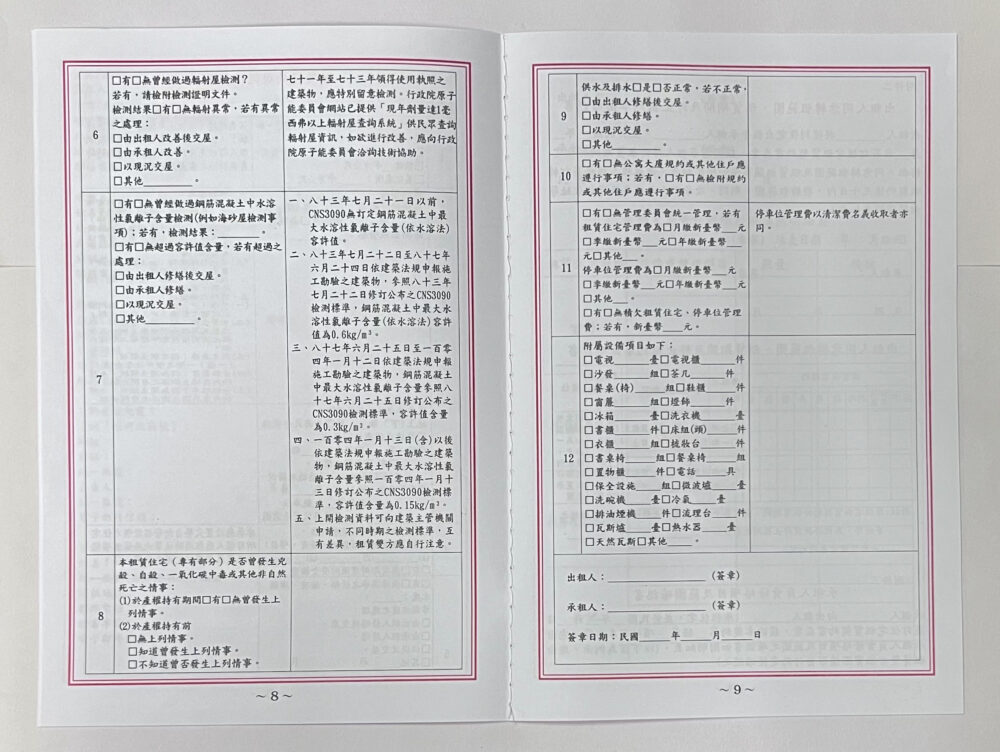 6
□有□無曾經做過輻射屋檢測？
若有，請檢附檢測證明文件。
檢測結果□有□無輻射異常，若有異常
之處理：
□由出租人改善後交屋。
□由承租人改善。
□以現況交屋。
□其他________。
七十一年至七十三年領得使用執照之
建築物，應特別留意檢測。行政院原子
能委員會網站已提供「現年劑量達1毫
西弗以上輻射屋查詢系統」供民眾查詢
輻射屋資訊，如欲進行改善，應向行政
院原子能委員會洽詢技術協助。
7
□有□無曾經做過鋼筋混凝土中水溶
性氯離子含量檢測(例如海砂屋檢測事
項)；若有，檢測結果：________。
□有□無超過容許值含量，若有超過之
處理：
□由出租人修繕後交屋。
□由承租人修繕。
□以現況交屋。
□其他________。
一、八十三年七月二十一日以前，
CNS3090無訂定鋼筋混凝土中最
大水溶性氯離子含量(依水溶法)
容許值。
二、八十三年七月二十二日至八十七年
六月二十四日依建築法規申報施
工勘驗之建築物，參照八十三年
七月二十二日修訂公布之CNS3090
檢測標準，鋼筋混凝土中最大水
溶性氯離子含量(依水溶法)容許
值為0.6kg/m³。
三、八十七年六月二十五日至一百零
四年一月十二日依建築法規申報
施工勘驗之建築物，鋼筋混凝土
中最大水溶性氯離子含量參照八
十七年六月二十五日修訂公布之
CNS3090檢測標準，容許值含量
為0.3kg/m³。
四、一百零四年一月十三日(含)以後
依建築法規申報施工勘驗之建築
物，鋼筋混凝土中最大水溶性氯
離子含量參照一百零四年一月十
三日修訂公布之CNS3090檢測標
準，容許值含量為0.15kg/m³。
五、上開檢測資料可向建築主管機關
申請，不同時期之檢測標準，互
有差異，租賃雙方應自行注意。
8
本租賃住宅（專有部分）是否曾發生兇
殺、自殺、一氧化碳中毒或其他非自然
死亡之情事：
(1)於產權持有期間□有□無曾發生上
列情事。
(2)於產權持有前
□無上列情事。
□知道曾發生上列情事。
□不知道曾否發生上列情事。
～8～
9
供水及排水□是□否正常，若不正常，
□由出租人修繕後交屋。
□由承租人修繕。
□以現況交屋。
□其他________。
10
□有□無公寓大廈規約或其他住戶應
遵行事項；若有，□有□無檢附規約
或其他住戶應遵行事項。
11
□有□無管理委員會統一管理，若有
租賃住宅管理費為□月繳新臺幣___元
□季繳新臺幣___元□年繳新臺幣___
元□其他___。
停車位管理費為□月繳新臺幣___元
□季繳新臺幣___元□年繳新臺幣___元
□其他___。
□有□無積欠租賃住宅、停車位管理
費；若有，新臺幣___元。
停車位管理費以清潔費名義收取者亦
同。
12
附屬設備項目如下：
□電視_____臺□電視櫃_____件
□沙發_____組□茶几_____件
□餐桌(椅)_____組□鞋櫃_____件
□窗簾_____組□燈飾_____件
□冰箱_____臺□洗衣機_____臺
□書櫃_____件□床組(頭)_____件
□衣櫃_____組□梳妝台_____件
□書桌椅_____組□餐桌椅_____組
□置物櫃_____件□電話_____具
□保全設施_____組□微波爐_____臺
□洗碗機_____臺□冷氣_____臺
□排油煙機_____件□流理台_____件
□瓦斯爐_____臺□熱水器_____臺
□天然瓦斯□其他_____。
出租人：________________(簽章)
承租人：________________(簽章)
簽章日期：民國_____年_____月_____日
～9～